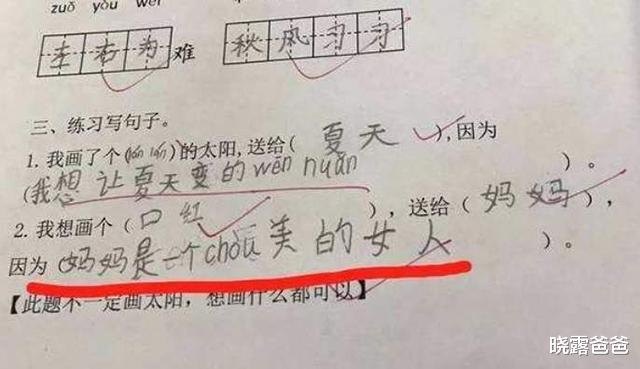 zuǒ yòu wéi
左右为难 秋风习习
三、练习写句子。
1. 我画了个( )的太阳,送给( 夏天 ),因为
(我想让夏天变的wēn nuǎn )。
2. 我想画个(口红),送给(妈妈),
因为(妈妈是一个chòu美的女人)。
【此题不一定画太阳,想画什么都可以】
晓露爸爸